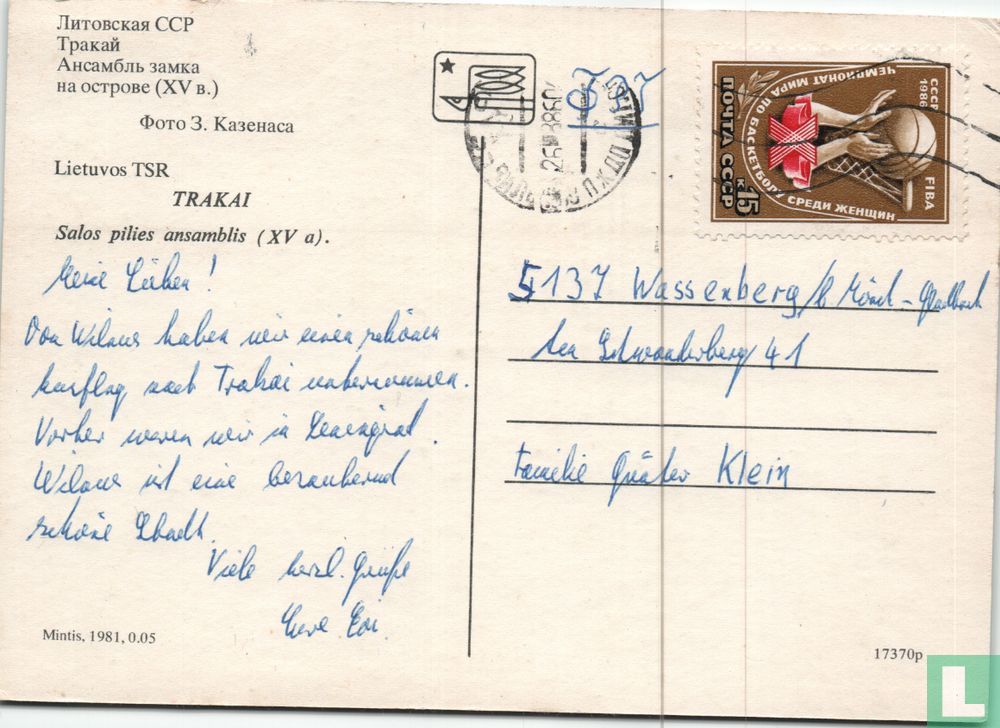 Литовская ССР
Тракай
Ансамбль замка
на острове (XV в.)
Фото З. Казенаса
Lietuvos TSR
TRAKAI
Salos pilies ansamblis (XV a).
Meine Lieben!
Von Wilnus haben wir einen schönen
Ausflug nach Trakai unternommen.
Vorher waren wir in Leningrad.
Wilnus ist eine bezaubernd
schöne Stadt.
Viele herzl. Grüße
Eure
Mintis, 1981, 0.05
СССР
1986
FIBA
ЧЕМПИОНАТ МИРА ПО БАСКЕТБОЛУ СРЕДИ ЖЕНЩИН
X
ПОЧТА СССР
15 к
5137 Wassenberg/b. Mönch-Gladbach
Am 41
Familie Klein
17370р